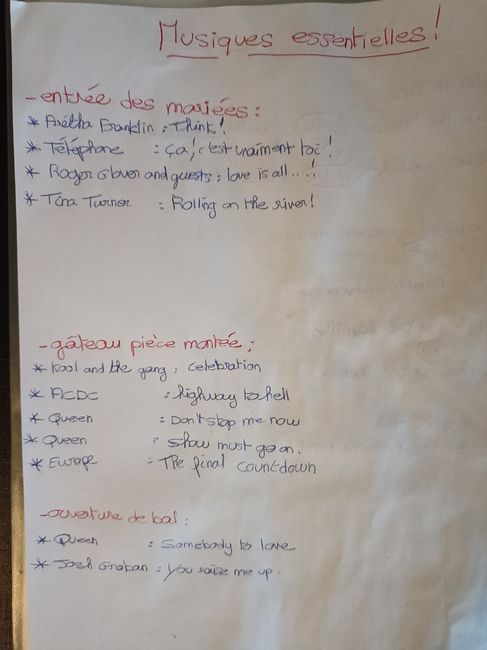 Musiques essentielles!
-entrée des mariées:
* Aretha Franklin : Think!
* Téléphone : Ça! c'est vraiment toi!
* Roger Glover and guests : love is all...!
* Tina Turner : Rolling on the river!
-gâteau pièce montée:
* Kool and the gang : celebration
* ACDC : highway to hell
* Queen : Don't stop me now
* Queen : show must go on.
* Europe : The final countdown
-ouverture de bal:
* Queen : Somebody to love
* Josh Groban : You raise me up.